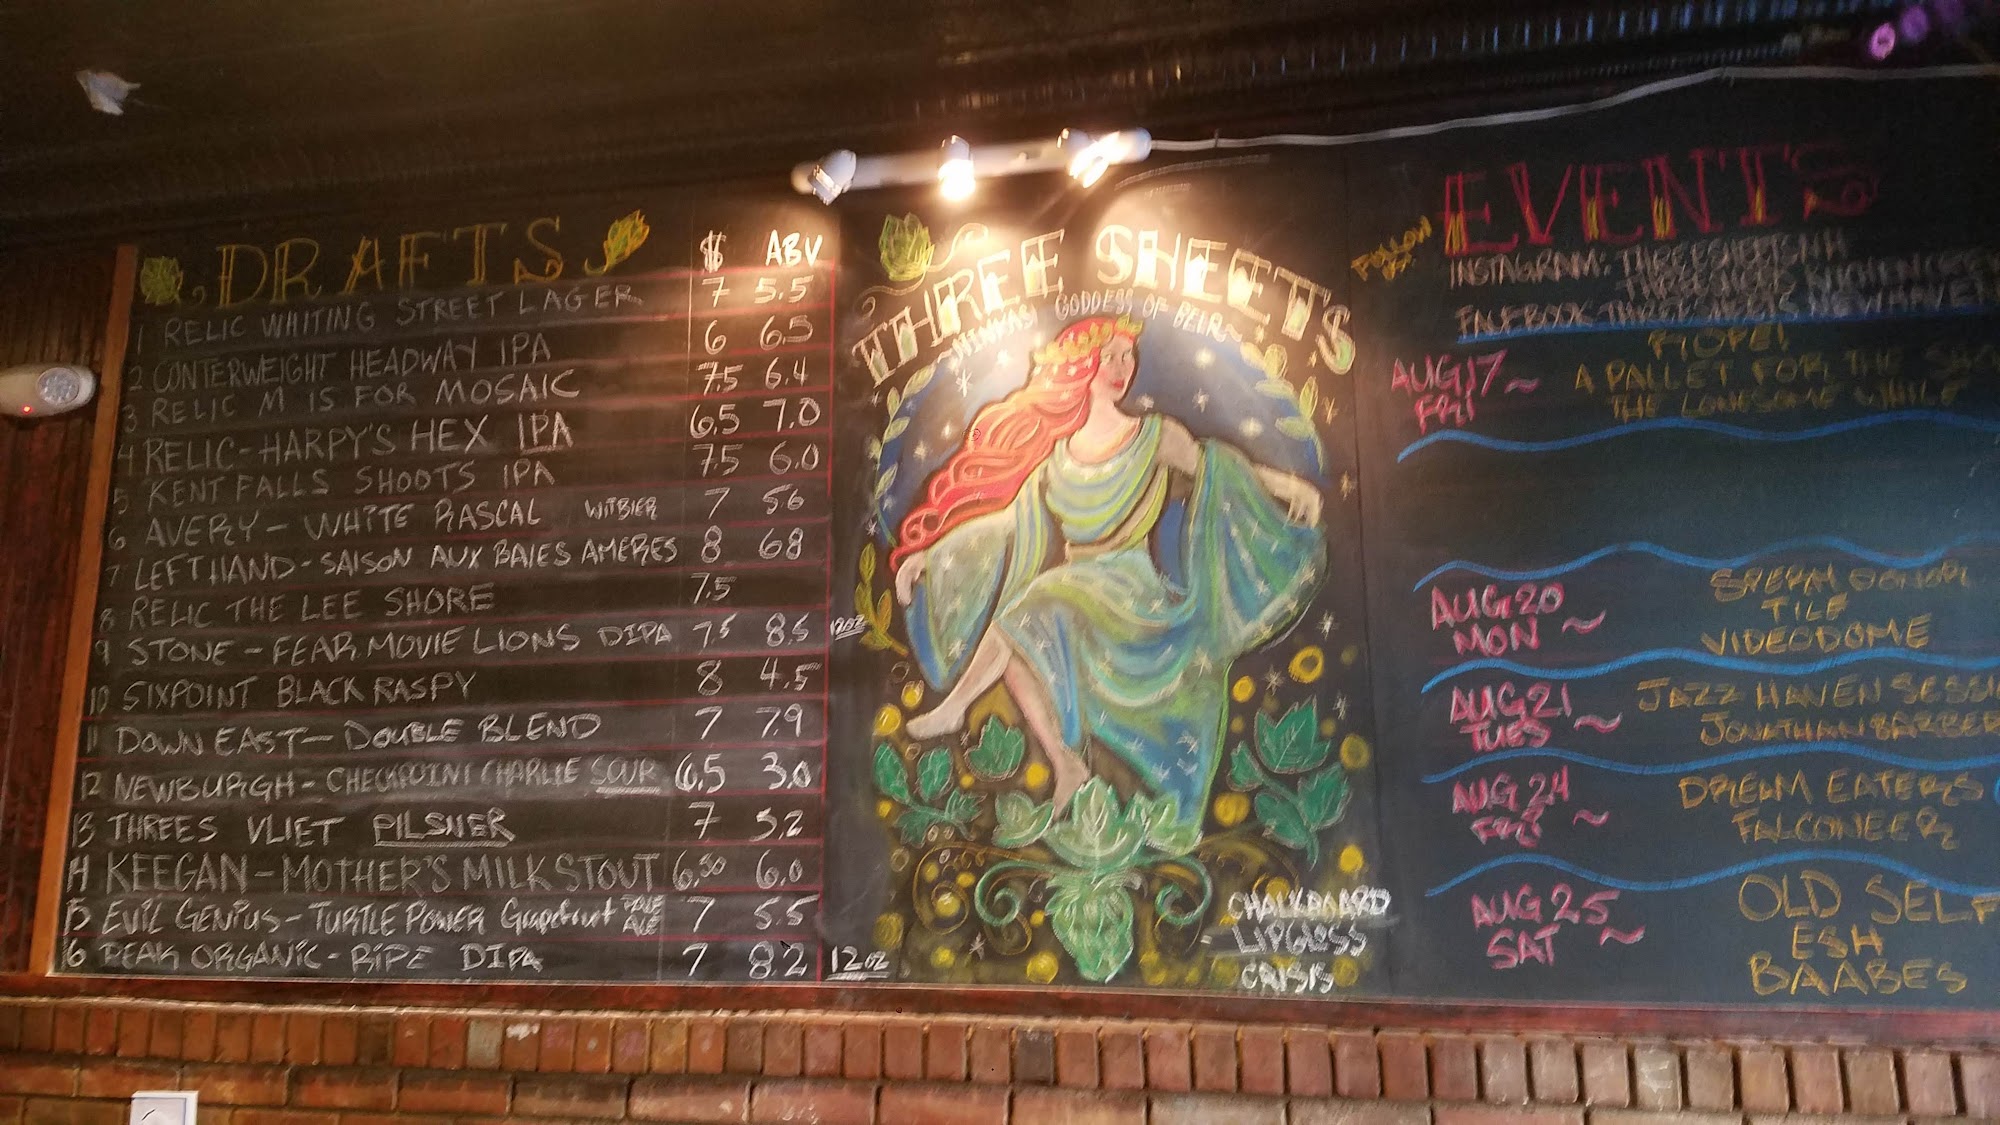 DRAFTS $ ABV
1 RELIC WHITING STREET LAGER 7 5.5
2 CONTERWEIGHT HEADWAY IPA 6 6.5
3 RELIC M IS FOR MOSAIC 7.5 6.4
4 RELIC-HARPY'S HEX IPA 6.5 7.0
5 KENT FALLS SHOOTS IPA 7.5 6.0
6 AVERY- WHITE RASCAL WITBIER 7 5.6
7 LEFT HAND-SAISON AUX BAIES AMERES 8 68
8 RELIC THE LEE SHORE 7.5
9 STONE-FEAR MOVIE LIONS DIPA 7.5 8.5 12oz
10 SIXPOINT BLACK RASPY 8 4.5
11 DOWN EAST- DOUBLE BLEND 7 7.9
12 NEWBURGH-CHECKPOINT CHARLIE SOUR 6.5 3.0
13 THREES VLIET PILSNER 7 5.2
14 KEEGAN-MOTHER'S MILK STOUT 6.50 6.0
15 EVIL GENIUS-TURTLE POWER Grapefruit PALE ALE 7 5.5
16 PEAK ORGANIC-RIPE DIPA 7 8.2 12oz
THREE SHEETS
~NINKASI GODDESS OF BEER~
CHALKBOARD
LIPGLOSS
CRISIS
FOLLOW
EVENTS
INSTAGRAM: THREESHEETSNH
FACEBOOK: THREESHEETS NEWHAVEN
AUG 17~
FRI
A PALLET FOR THE
THE LONESOME WHILE
AUG 20
MON ~
SPERM DONOR
TILE
VIDEODOME
AUG 21
TUES ~
JAZZ HAVEN SESSI
JONATHAN BARBER
AUG 24
FRI ~
DREAM EATERS
FALCONEER
AUG 25
SAT ~
OLD SELF
ESH
BAABES